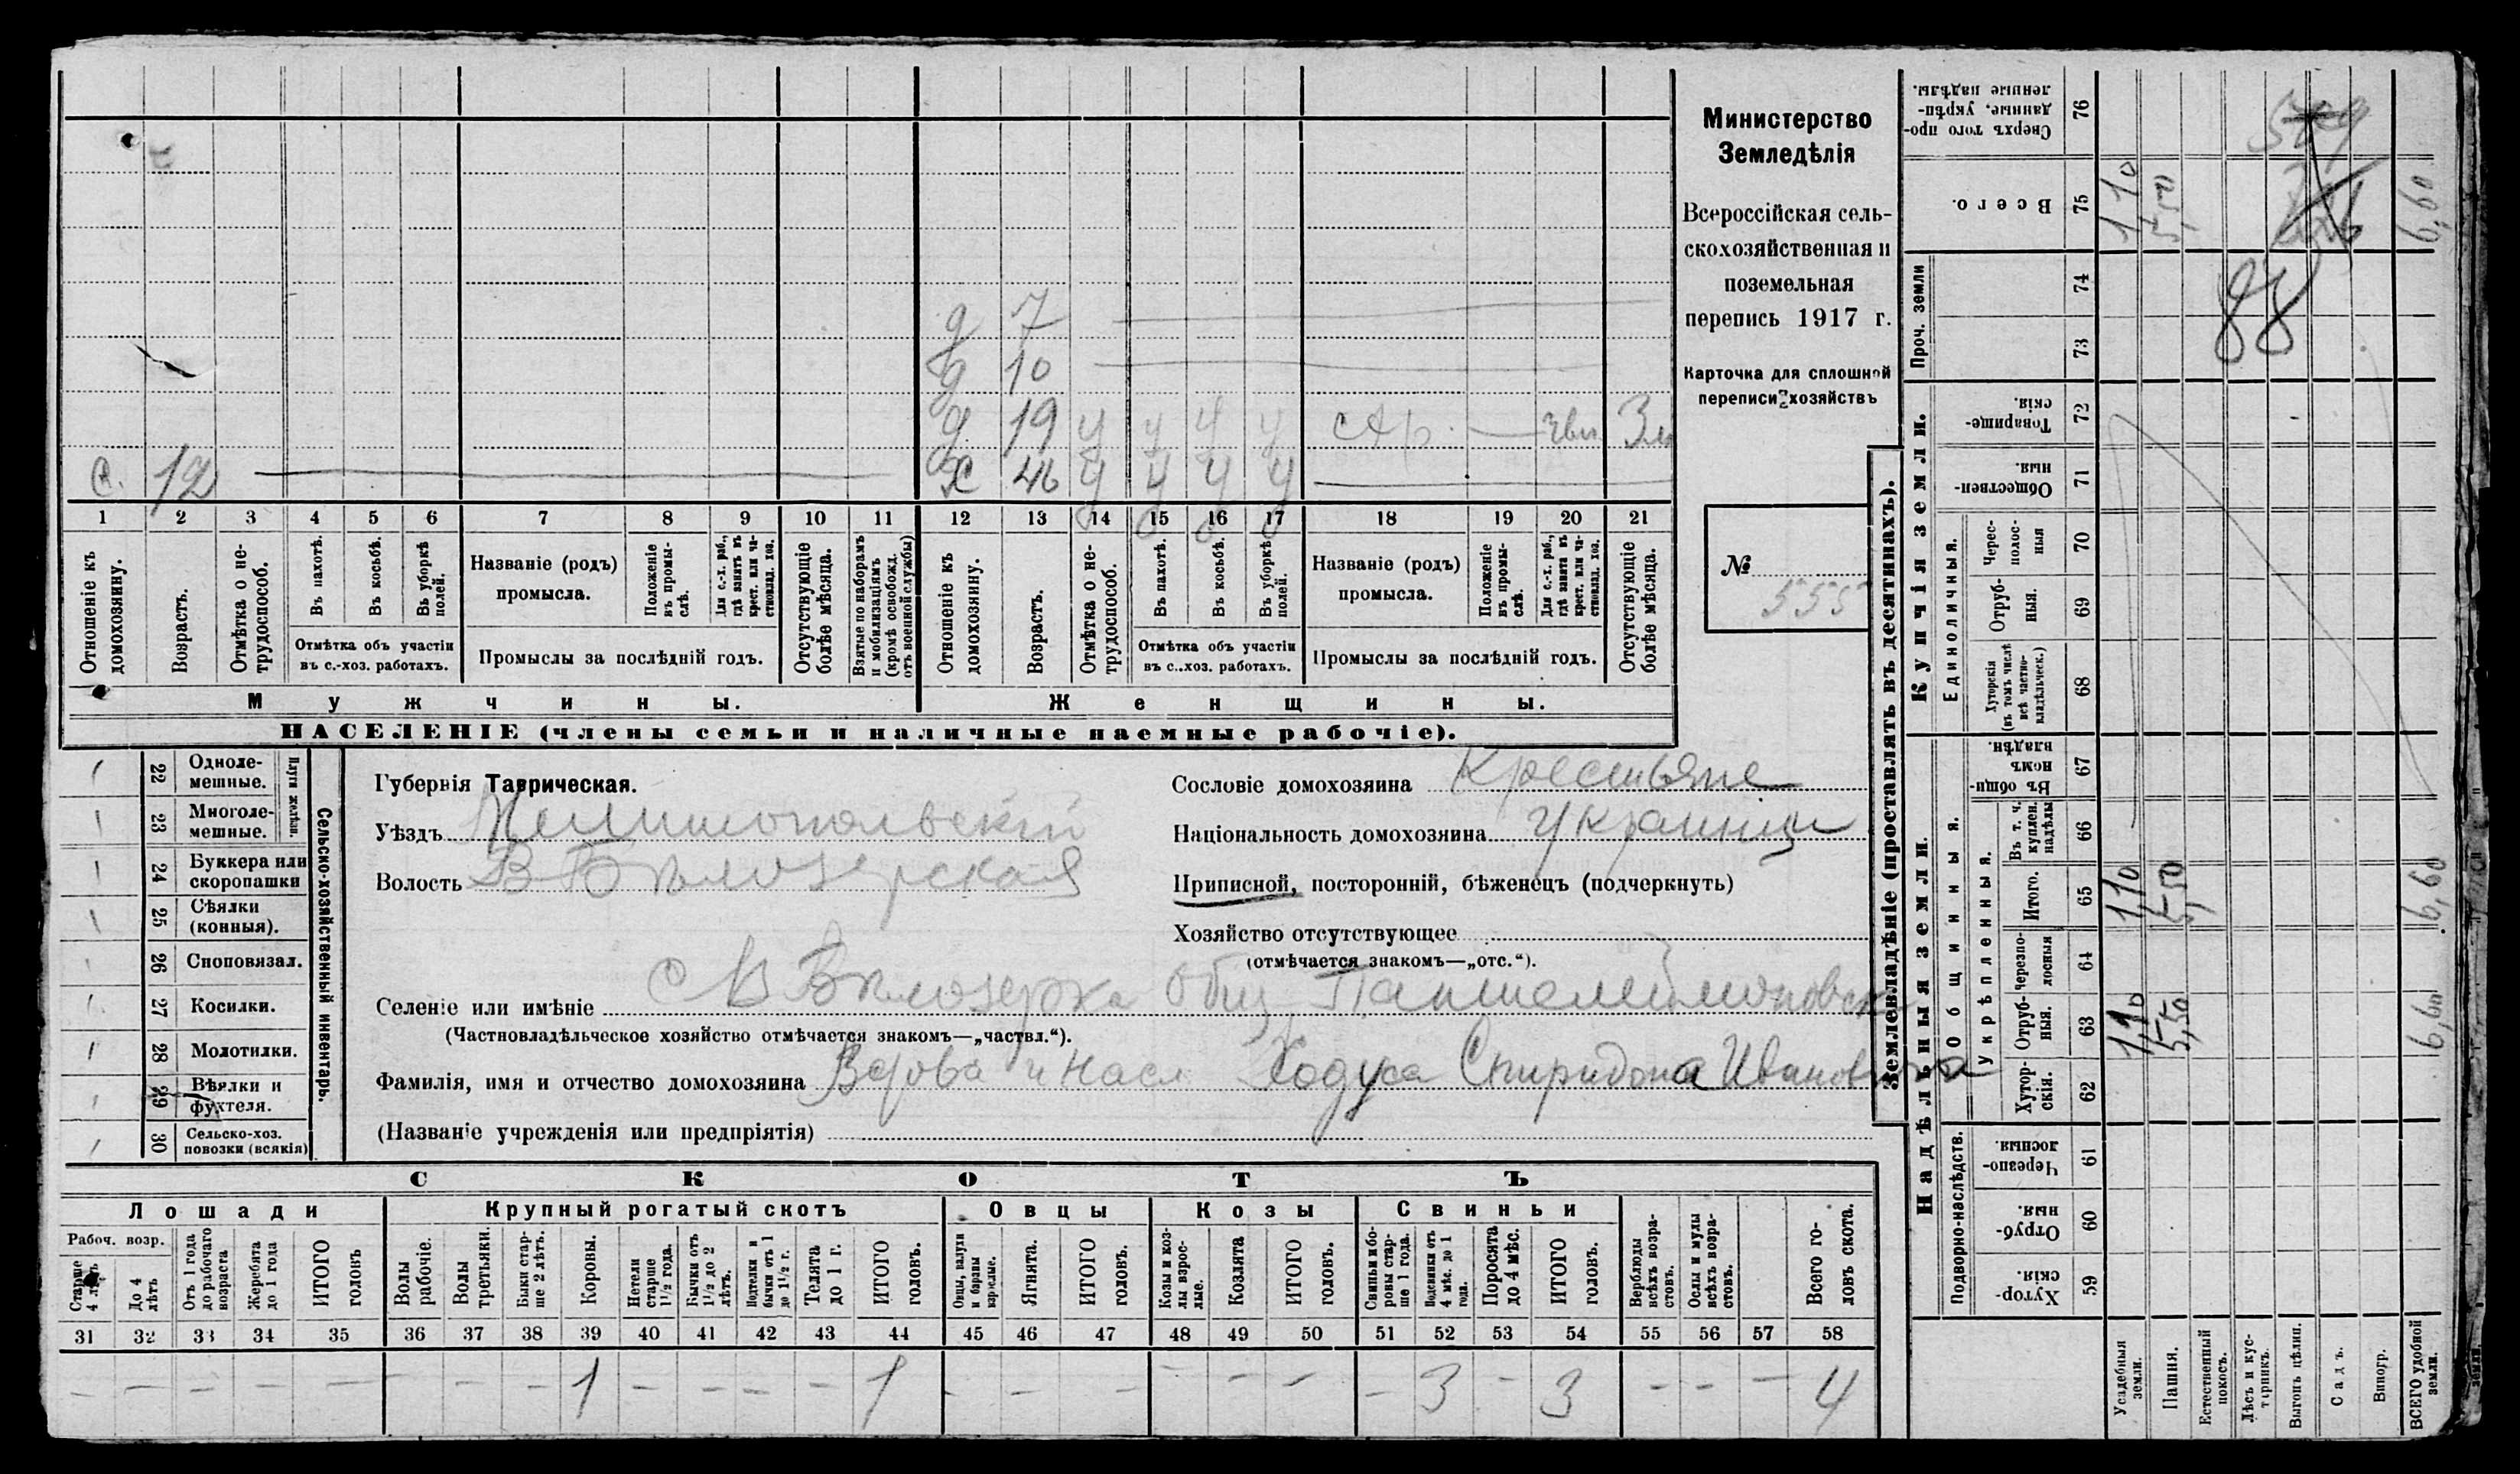 Министерство
Земледѣлія
Всероссійская сель-
скохозяйственная и
поземельная
перепись 1917 г.
Карточка для сплошной
переписи хозяйствъ
№ 555
д 7
д 10
д 19 у у у у 3
с. 12 ж 46 у у у у
1 2 3 4 5 6 7 8 9 10 11 12 13 14 15 16 17 18 19 20 21
Отношеніе къ домохозяину.
Возрастъ.
Отмѣтка о не-трудоспособ.
Въ пахотѣ.
Въ косьбѣ.
Въ уборкѣ полей.
Отмѣтка объ участіи
въ с.-хоз. работахъ.
Названіе (родъ)
промысла.
Положеніе въ промы-слѣ.
Для с.-х. раб., гдѣ занятъ въ крест. или ча-стновлад. хоз.
Промыслы за послѣдній годъ.
Отсутствующіе болѣе мѣсяца.
Взятые по наборамъ и мобилизаціямъ (кромѣ освобожд. отъ военной службы)
Отношеніе къ домохозяину.
Возрастъ.
Отмѣтка о не-трудоспособ.
Въ пахотѣ.
Въ косьбѣ.
Въ уборкѣ полей.
Отмѣтка объ участіи
въ с.-хоз. работахъ.
Названіе (родъ)
промысла.
Положеніе въ промы-слѣ.
Для с.-х. раб., гдѣ занята въ крест. или ча-стновлад. хоз.
Промыслы за послѣдній годъ.
Отсутствующіе болѣе мѣсяца.
Мужчины. Женщины.
НАСЕЛЕНІЕ (члены семьи и наличные наемные рабочіе).
Сельско-хозяйственный инвентарь.
Плуги желѣзн.
22 Одноле-мешные.
23 Многоле-мешные.
24 Буккера или скоропашки
25 Сѣялки (конныя).
26 Сноповязал.
27 Косилки.
28 Молотилки.
29 Вѣялки и фухтеля.
30 Сельско-хоз. повозки (всякія)
Губернія Таврическая.
Уѣздъ Мелитопольскій
Волость В Бѣлозерская
Сословіе домохозяина Крестьяне
Національность домохозяина Украинцы
Приписной, посторонній, бѣженецъ (подчеркнуть)
Хозяйство отсутствующее
(отмѣчается знакомъ—„отс.“).
Селеніе или имѣніе с В Бѣлозерка общ Пантелеймоновск
(Частновладѣльческое хозяйство отмѣчается знакомъ—„частвл.“).
Фамилія, имя и отчество домохозяина Вдова и насл Ходуса Спиридона Иванов
(Названіе учрежденія или предпріятія)
СКОТЪ
Лошади Крупный рогатый скотъ Овцы Козы Свиньи
Рабоч. возр.
Старше 4 лѣтъ
До 4 лѣтъ
Отъ 1 года до рабочаго возраста
Жеребята до 1 года
ИТОГО головъ
Волы рабочіе.
Волы третьяки.
Быки стар-ше 2 лѣтъ.
Коровы.
Нетели старше 1½ года.
Бычки отъ 1½ до 2 лѣтъ.
Подтелки и бычки отъ 1 до 1½ г.
Телята до 1 г.
ИТОГО головъ.
Овцы, валухи и бараны взрослые.
Ягнята.
ИТОГО головъ.
Козы и коз-лы взрос-лые.
Козлята
ИТОГО головъ.
Свиньи и бо-ровы стар-ше 1 года.
Подсвинки отъ 4 мѣс. до 1 года.
Поросята до 4 мѣс.
ИТОГО головъ.
Верблюды всѣхъ возра-стовъ.
Ослы и мулы всѣхъ возра-стовъ.
Всего го-ловъ скота.
31 32 33 34 35 36 37 38 39 40 41 42 43 44 45 46 47 48 49 50 51 52 53 54 55 56 57 58
– – – – – – – – 1 – – – – 1 – – – – – – – 3 – 3 – – – 4
Землевладѣніе (проставлять въ десятинахъ).
Надѣльныя земли. Купчія земли. Проч. земли
Подворно-наслѣдств.
Общинныя.
Укрѣпленныя.
Единоличныя.
59 Хутор-скія.
60 Отруб-ныя.
61 Черезпо-лосныя.
62 Хутор-скія.
63 Отруб-ныя. 1,10 5,50 6,60
64 черезпо-лосныя
65 Итого. 1,10 5,50 6,60
66 Въ т. ч. куплен. надѣлы
67 Въ общи-нномъ владѣн.
68 Хуторскія (въ томъ числѣ всѣ частно-владѣльческ.)
69 Отруб-ныя.
70 Черес-полос-ныя
71 Обществен-ныя.
72 Товарище-скія.
73
74
75 Всего. 1,10 5,50 6,60
76 Сверхъ того про-данные, укрѣп-ленные надѣлы.
88
Усадебныя земли.
Пашня.
Естественный покосъ.
Лѣсъ и кус-тарникъ.
Выгонъ цѣлин.
Садъ.
Виногр.
ВСЕГО удобной земли.